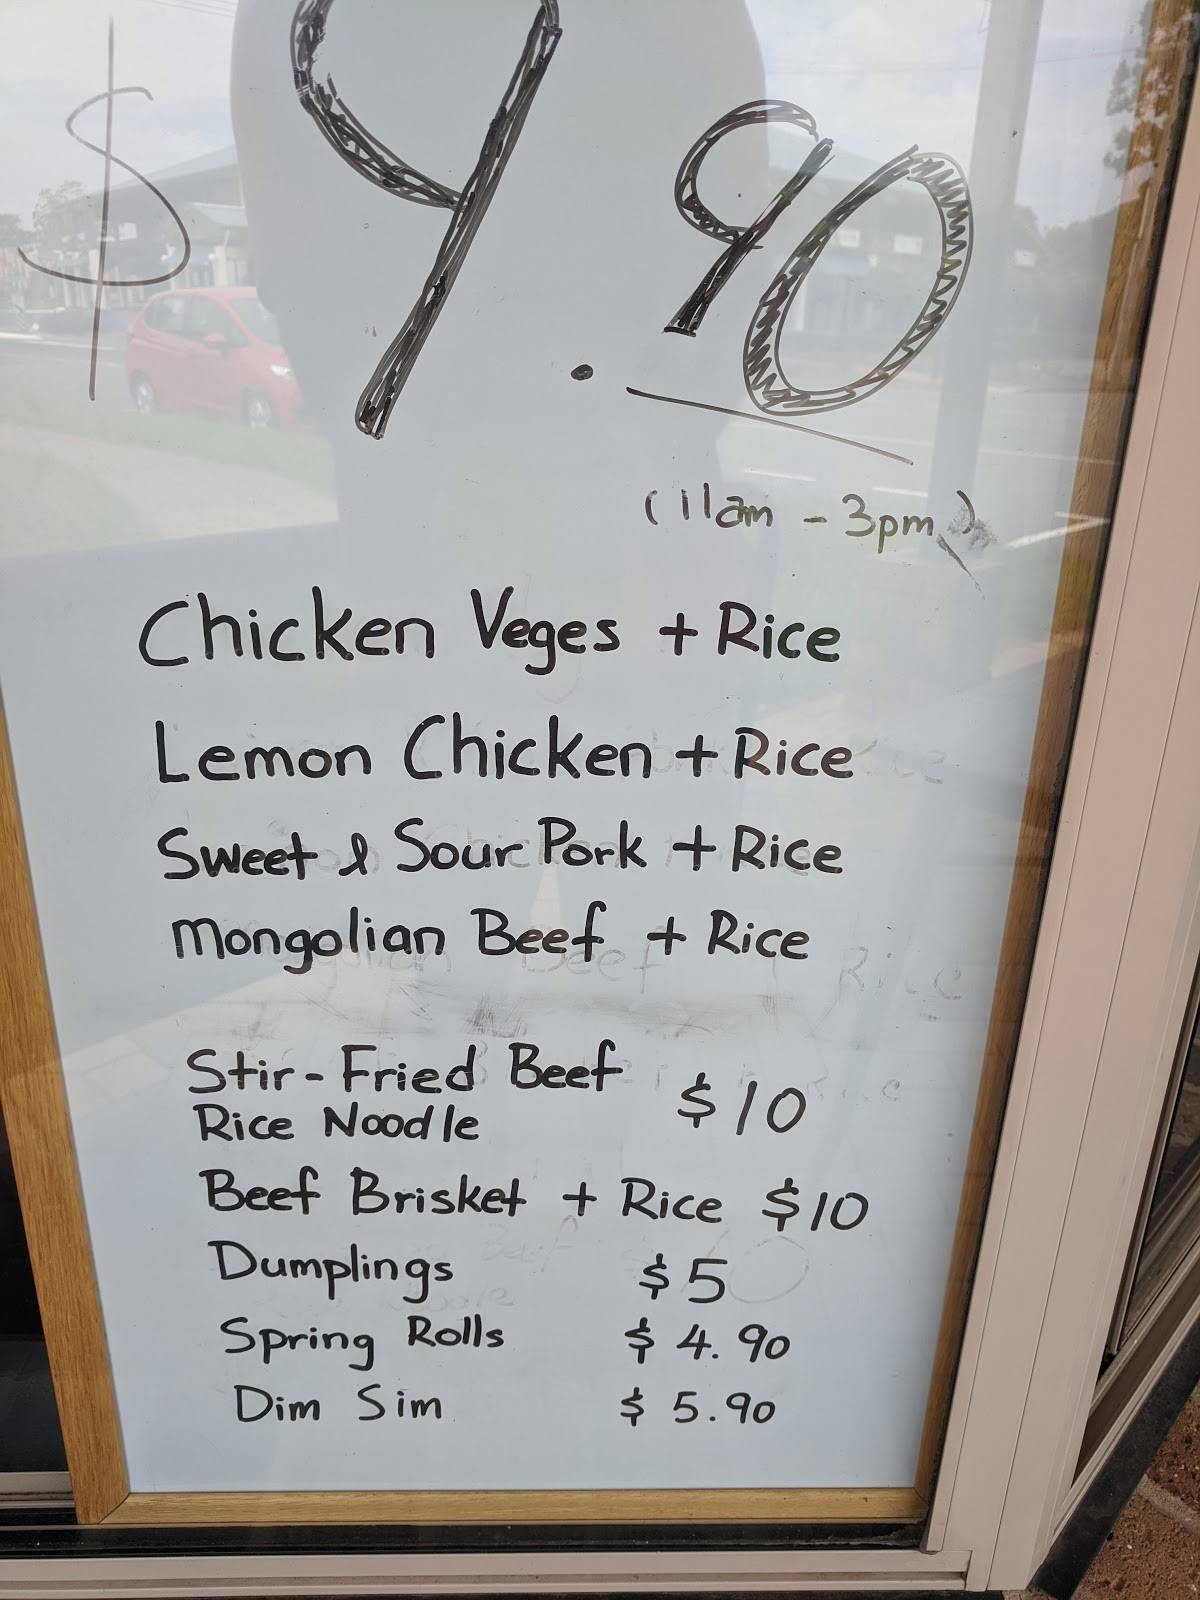 $ 9.90
(11am - 3pm)
Chicken Veges + Rice
Lemon Chicken + Rice
Sweet & Sour Pork + Rice
Mongolian Beef + Rice
Stir-Fried Beef
Rice Noodle $10
Beef Brisket + Rice $10
Dumplings $5
Spring Rolls $4.90
Dim Sim $5.90